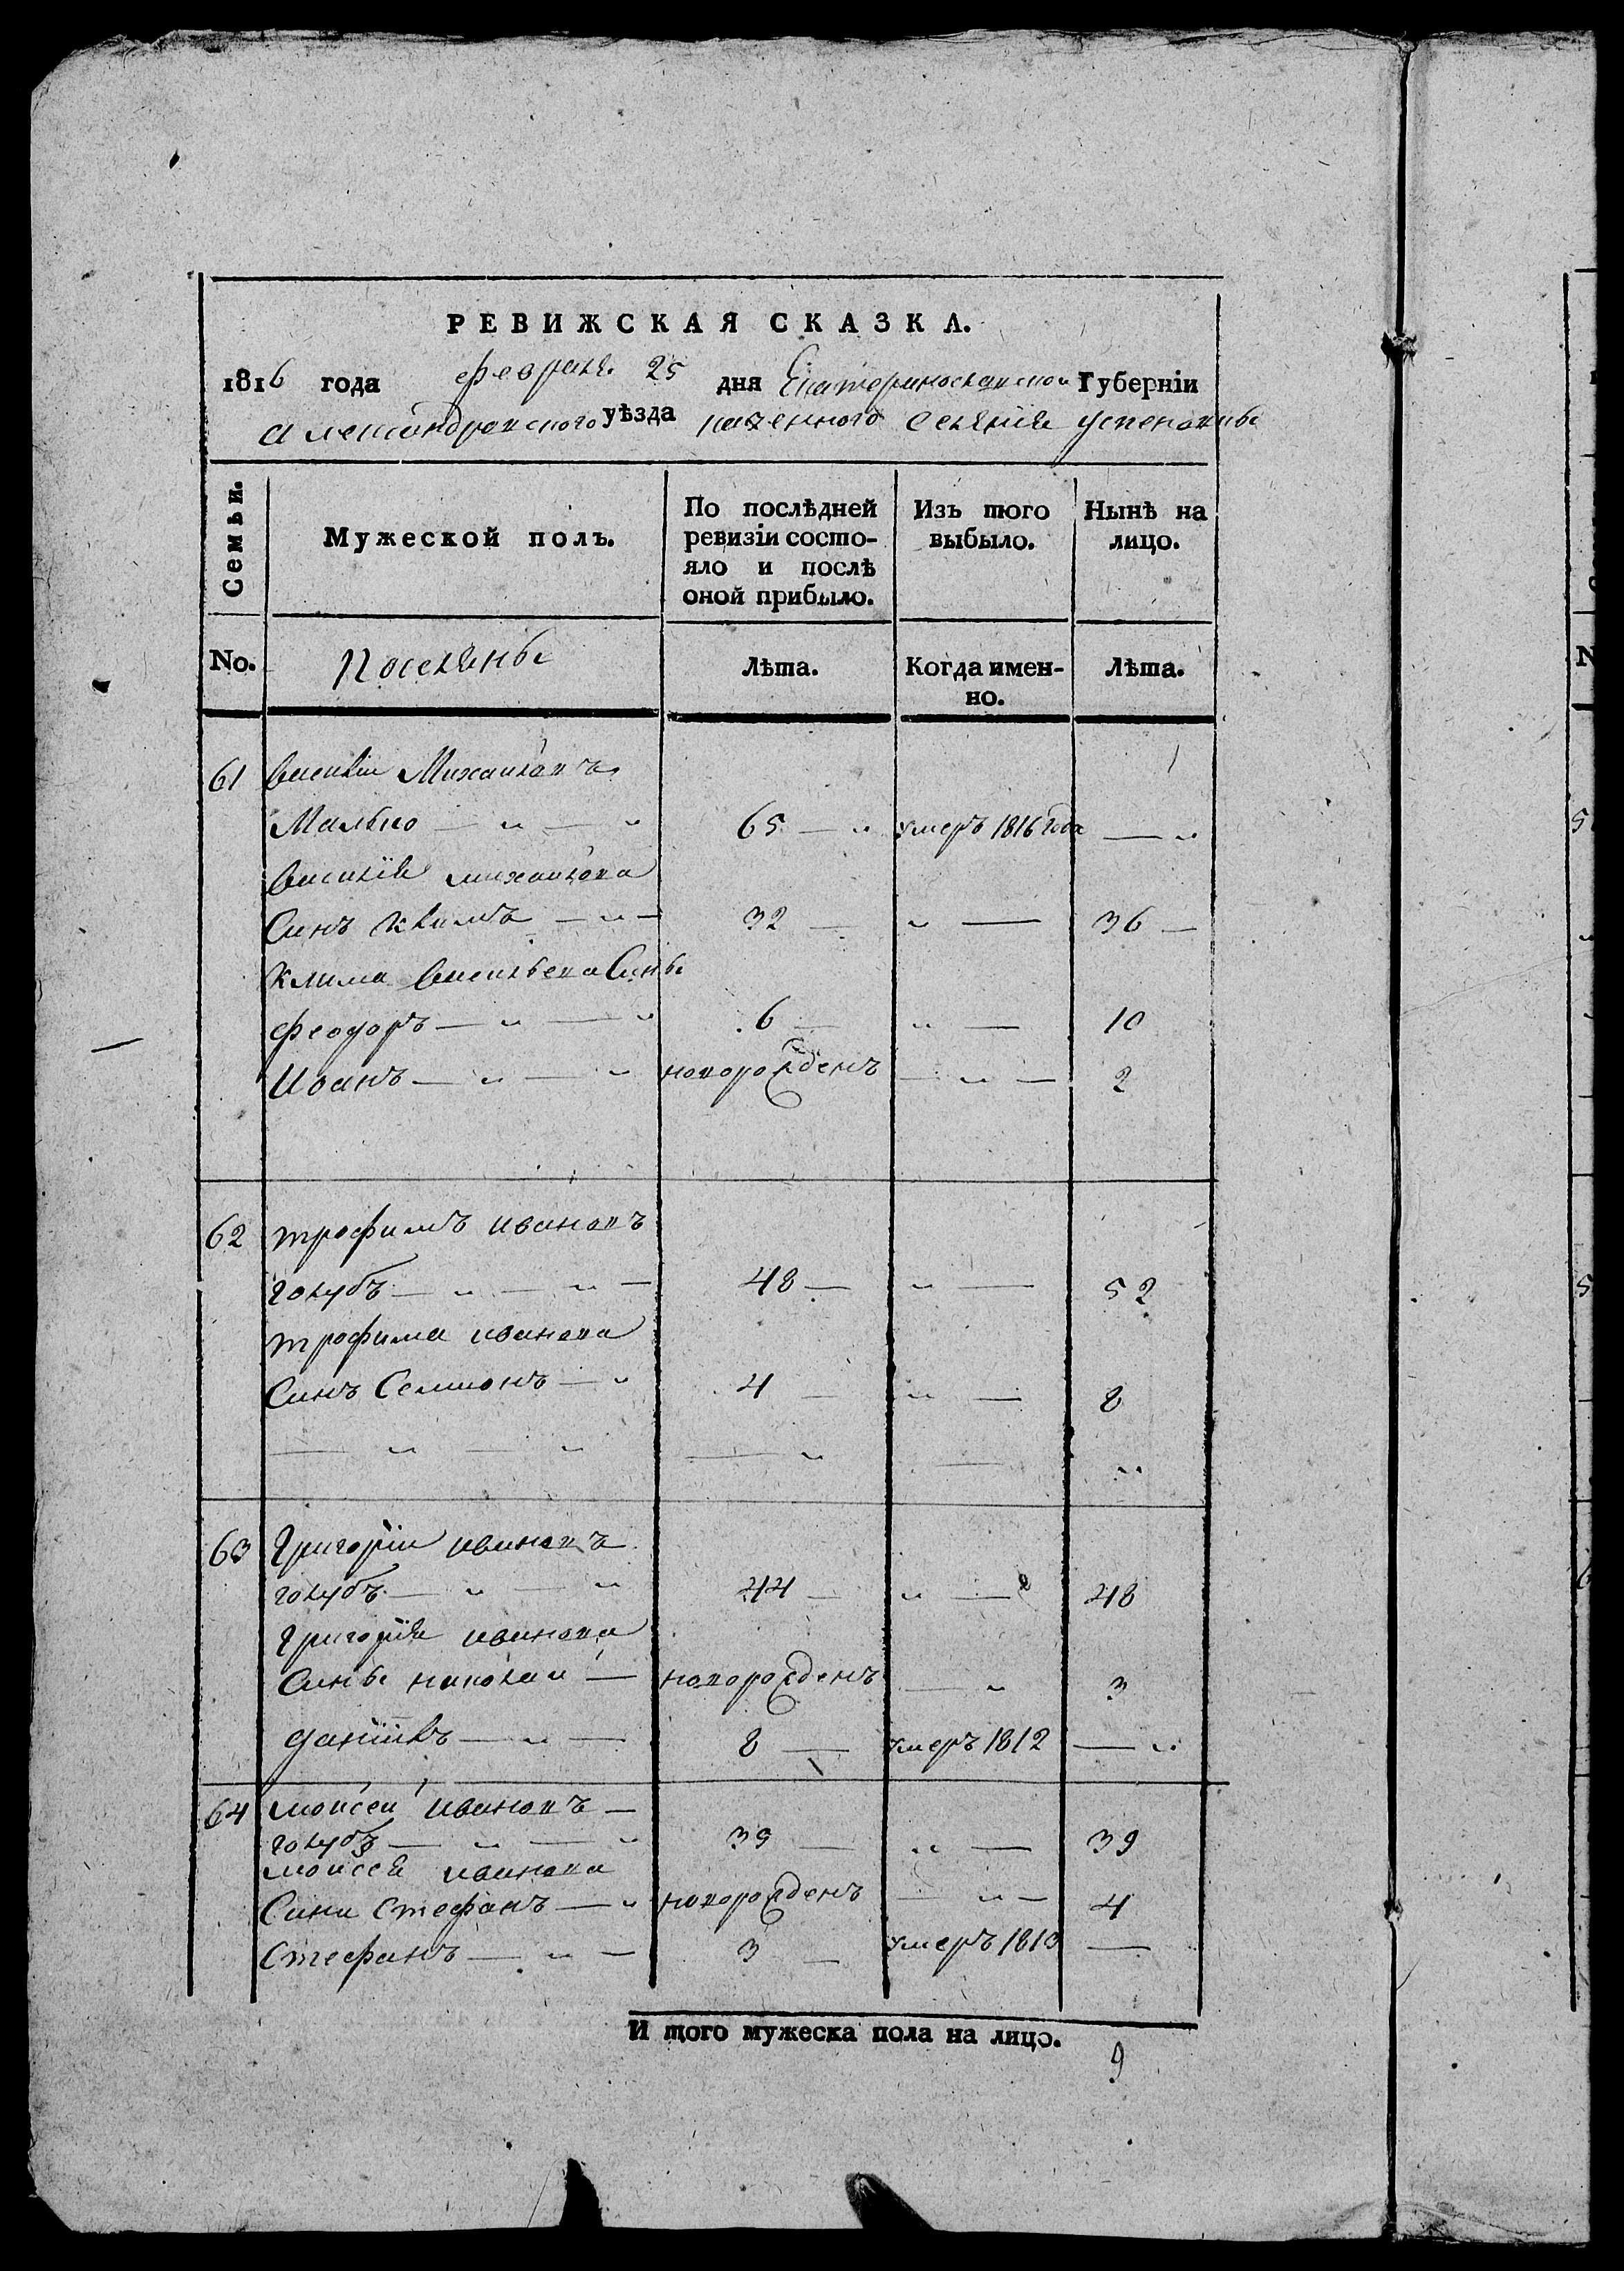 РЕВИЖСКАЯ СКАЗКА.
1816 года февраля 25 дня Екатеринославской Губерніи
Александровского уѣзда казенного Селения Успеновкы
Семьи.
Мужеской полъ.
По послѣдней ревизіи состо-
яло и послѣ
оной прибыло.
Изъ того
выбыло.
Нынѣ на
лицо.
No. ПоселянЫ Лѣта. Когда имен-
но. Лѣта.
61 Василіи Михаиловъ
Малько — „ — „ 65 — „ умеръ 1816 года — „
Василія михаилова
Синъ Климъ — „ — 32 — „ — 36 —
Клима Васильева Сины
Феодоръ — „ — „ 6 — „ — 10
Иванъ — „ — „ новорожденъ — „ — 2
62 трофимъ ивановъ
голубъ — „ — „ — 48 — „ — 52
трофима иванова
Синъ Семионъ — „ 4 — „ — 8
— „ — „ — „ — „
63 Григоріи ивановъ
голубъ — „ — „ 44 — „ — 48
Григорія иванова
Сины николаи — новорожденъ — „ 3
даніилъ — „ — 8 — умеръ 1812 — „
64 моисеи ивановъ —
голубъ — „ — „ 39 — „ — 39
моисея иванова
Сини Стефанъ — „ новорожденъ — „ — 4
Стефанъ — „ — 3 — умеръ 1813 —
И того мужеска пола на лицо.
9